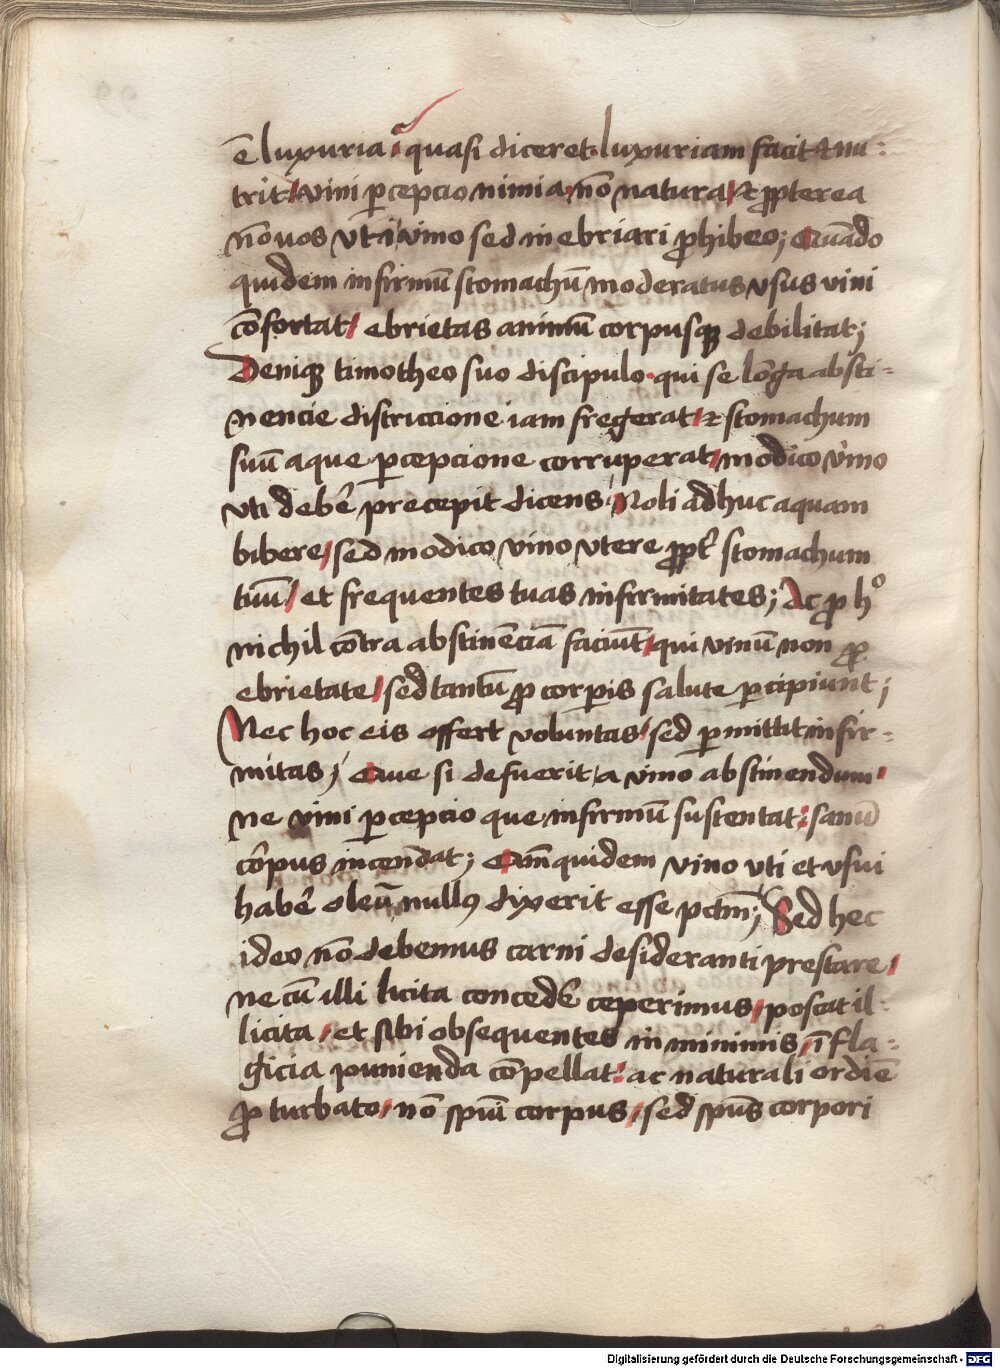 ē luxuria quasi diceret luxuriam facit et nu-
trit / vini ꝑcepcio nimia nō natura / et ꝓpterea
nō vos vti vino sed inebriari ꝓhibeo; Quādo
quidem infirmū stomachū moderatus vsus vini
cōfortat / ebrietas animū corpusqꝫ debilitat;
Deniqꝫ timotheo suo discipulo qui se lōga absti-
nencie districcione iam fregerat / et stomachum
suū aque ꝑcepcione corruperat / modico vino
vti debē precepit dicens / Noli adhuc aquam
bibere / sed modico vino vtere ꝓpt̄ stomachum
tuū / et frequentes tuas infirmitates; Ac ꝓ hº
nichil cōtra abstinēciā faciūt / qui vinū non ꝓ
ebrietate / sed tantū ꝓ corꝑis salute ꝑcipiunt;
Nec hoc eis offert voluntas / sed ꝑmittit infir-
mitas; Que si defuerit / a vino abstinendum /
ne vini ꝑcepcio que infirmū sustentat: sanū
corpus incendat; Cum quidem vino vti et vsui
habē oleū nullꝰ dixerit esse pctm̄; Sed hec
ideo nō debemus carni desideranti prestare /
ne cū illi licita concedē ceperimus / poscat il-
licita / et sibi obsequentes in minimis / ī fla-
gicia punienda cōpellat: ac naturali ordiē
ꝓturbato / nō spūi corpus / sed spūs corpori
Digitalisierung gefördert durch die Deutsche Forschungsgemeinschaft - DFG